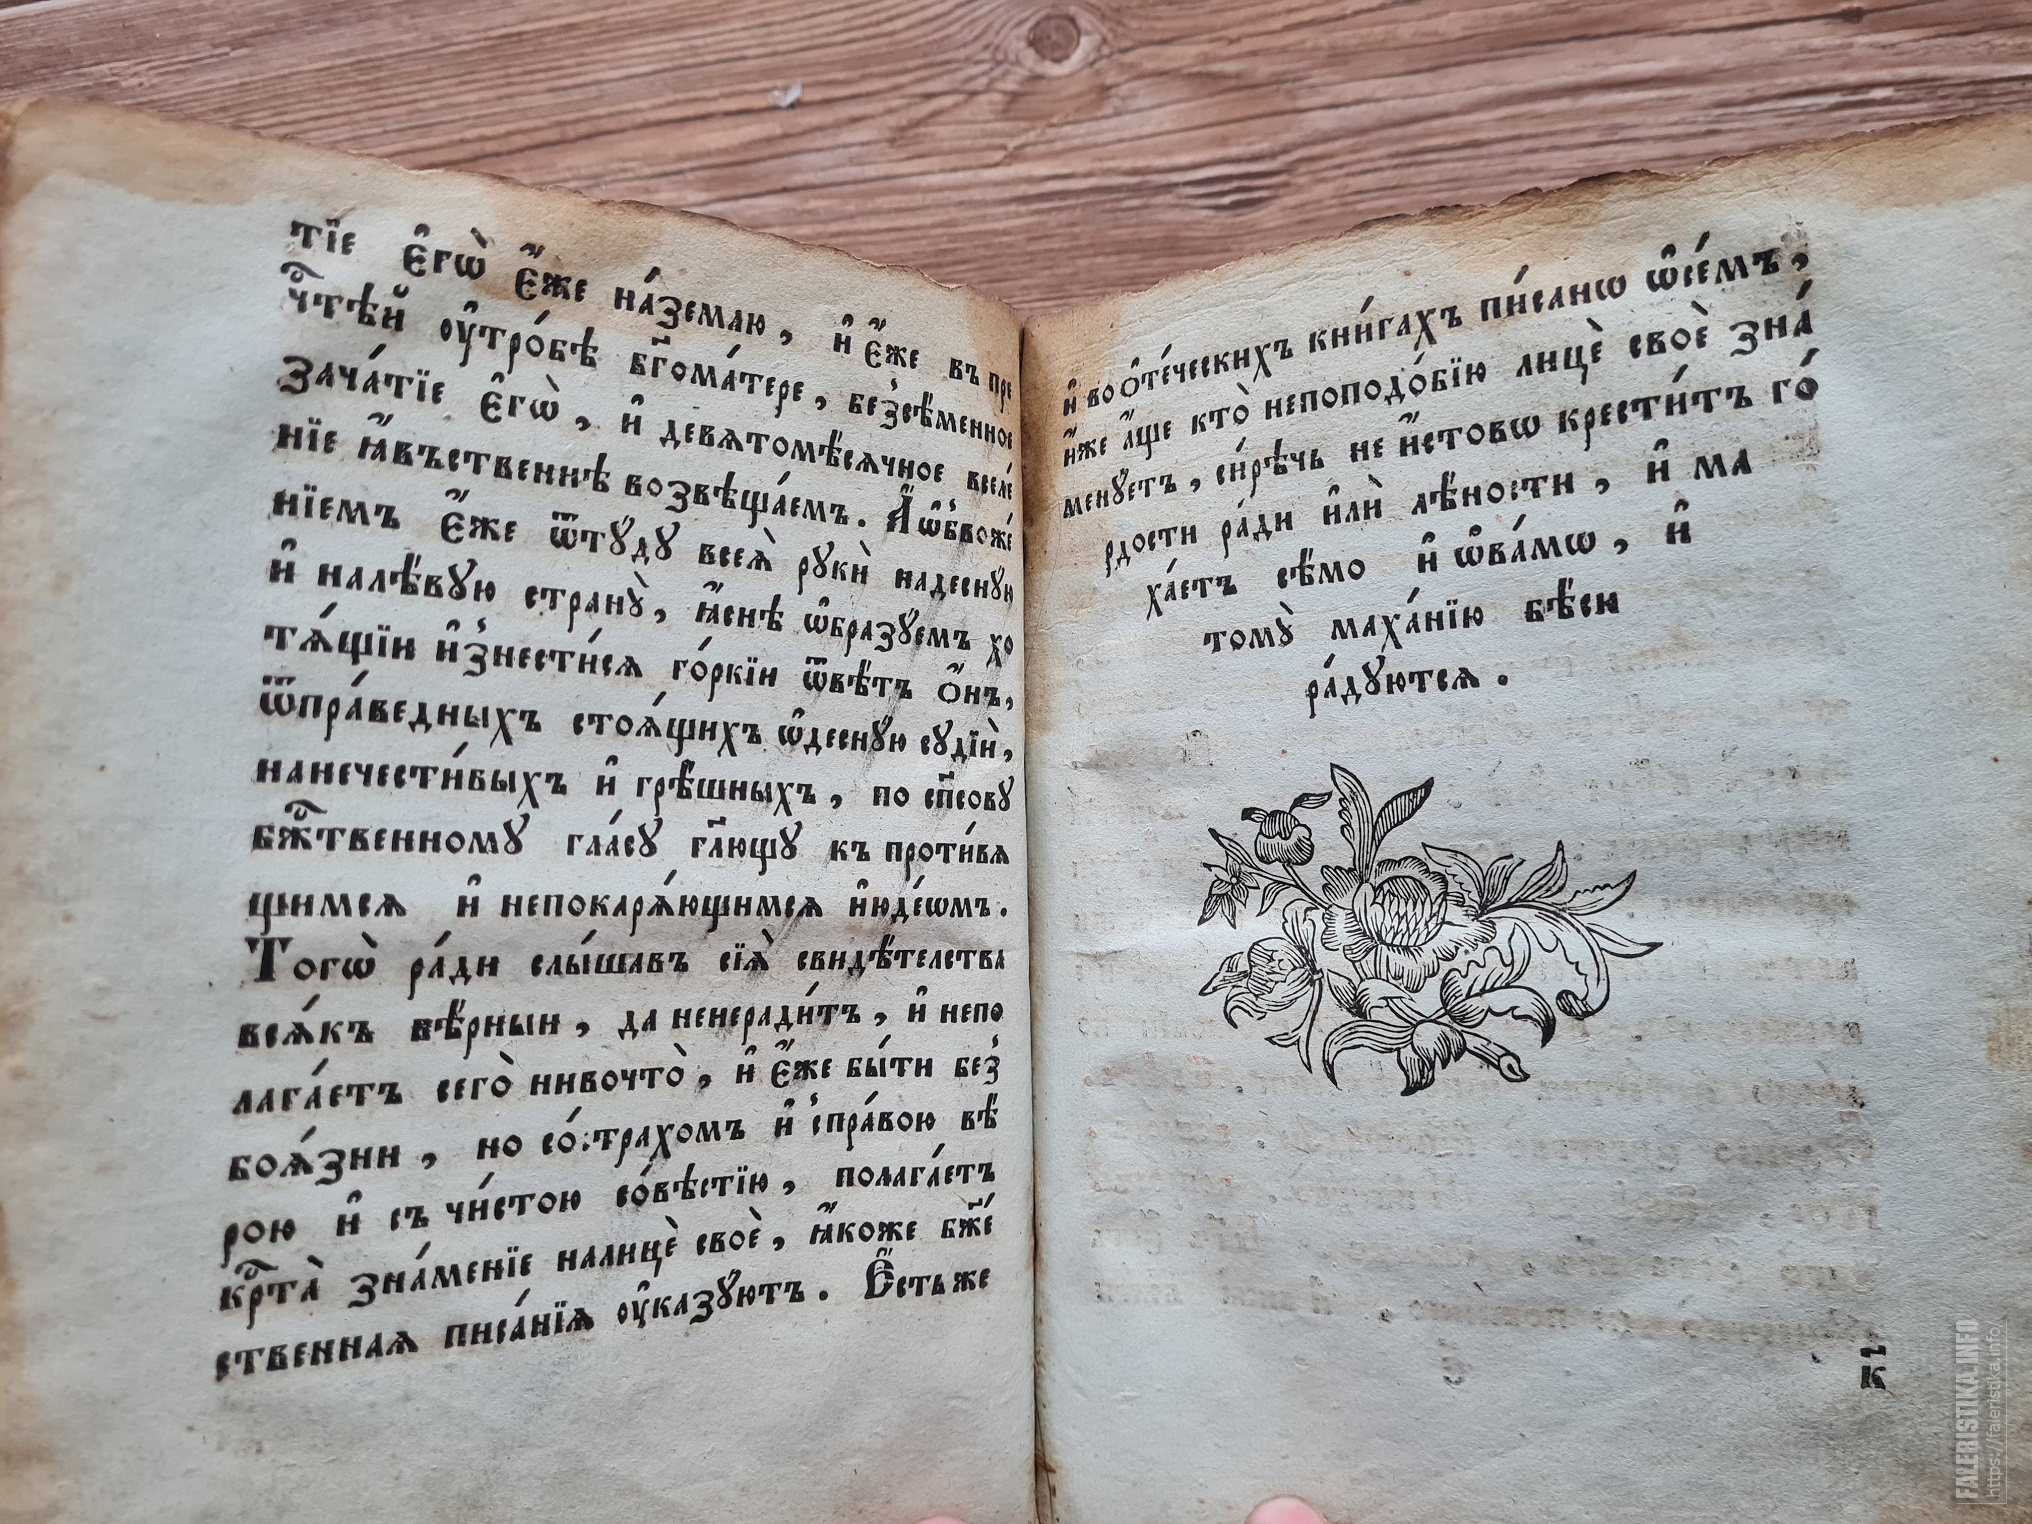 тїе є҆гѡ̀ є҆́же на́землю, и҆ є҆́же въ пре
чⷭ҇тѣй ᲂу҆тро́бѣ бг҃ома́тере, без̾сѣ́менное
зача́тїе є҆гѡ̀, и҆ девѧтомѣ́сѧчное вселе́
нїе ꙗ҆́въственнѣ возвѣща́емъ. А҆́ ѡ҆б̾воже́
нїемъ є҆́же ѿтꙋ́дꙋ всеѧ̀ рꙋкѝ надеснꙋ́ю
и҆ налѣ́вꙋю странꙋ̀, ꙗ҆́снѣ ѡ҆бразꙋ́емъ хо
тѧ́щїи и҆з̾нести́сѧ го́ркїи ѿвѣ́тъ ѻ҆́нъ,
ѿпра́ведныхъ стоѧ́щихъ ѡ҆деснꙋ́ю сꙋдїѝ,
нанечести́выхъ и҆ грѣ́шныхъ, по сп҃совꙋ
бжⷭ҇твенномꙋ гла́сꙋ гл҃ющꙋ къ проти́вѧ
щимсѧ и҆ непокарѧ́ющимсѧ и҆юде́ѡмъ.
Тогѡ̀ ра́ди слы́шавъ сїѧ̀ свидѣ́телства
всѧ́къ вѣ́рныи, да ненеради́тъ, и҆ непо
лага́етъ сего̀ нивочто̀, и҆ є҆́же бы́ти без̾
боѧ́зни, но со́ страхомъ и҆ с̾пра́вою вѣ́
рою и҆ съ чи́стою со́вѣстїю, полага́етъ
крⷭ҇та̀ зна́менїе налицѐ своѐ, ꙗ҆́коже бж҃е́
ственнаѧ писа́нїѧ ᲂу҆казꙋ́ютъ. Є҆́сть же
и҆ воѻ҆те́ческихъ кни́гахъ пи́санѡ ѡ҆се́мъ,
и҆́же а҆́ще кто̀ неподо́бїю лицѐ своѐ зна́
менꙋетъ, си́рѣчь не и҆́стовѡ крести́тъ го́
рдости ра́ди и҆лѝ лѣ́ности, и҆ ма
ха́етъ сѣ́мо и҆ ѡ҆ва́мѡ, и҆
томꙋ̀ маха́нїю бѣ́си
ра́дꙋютсѧ.
к҃
FALERISTIKA.INFO
https://faleristika.info/